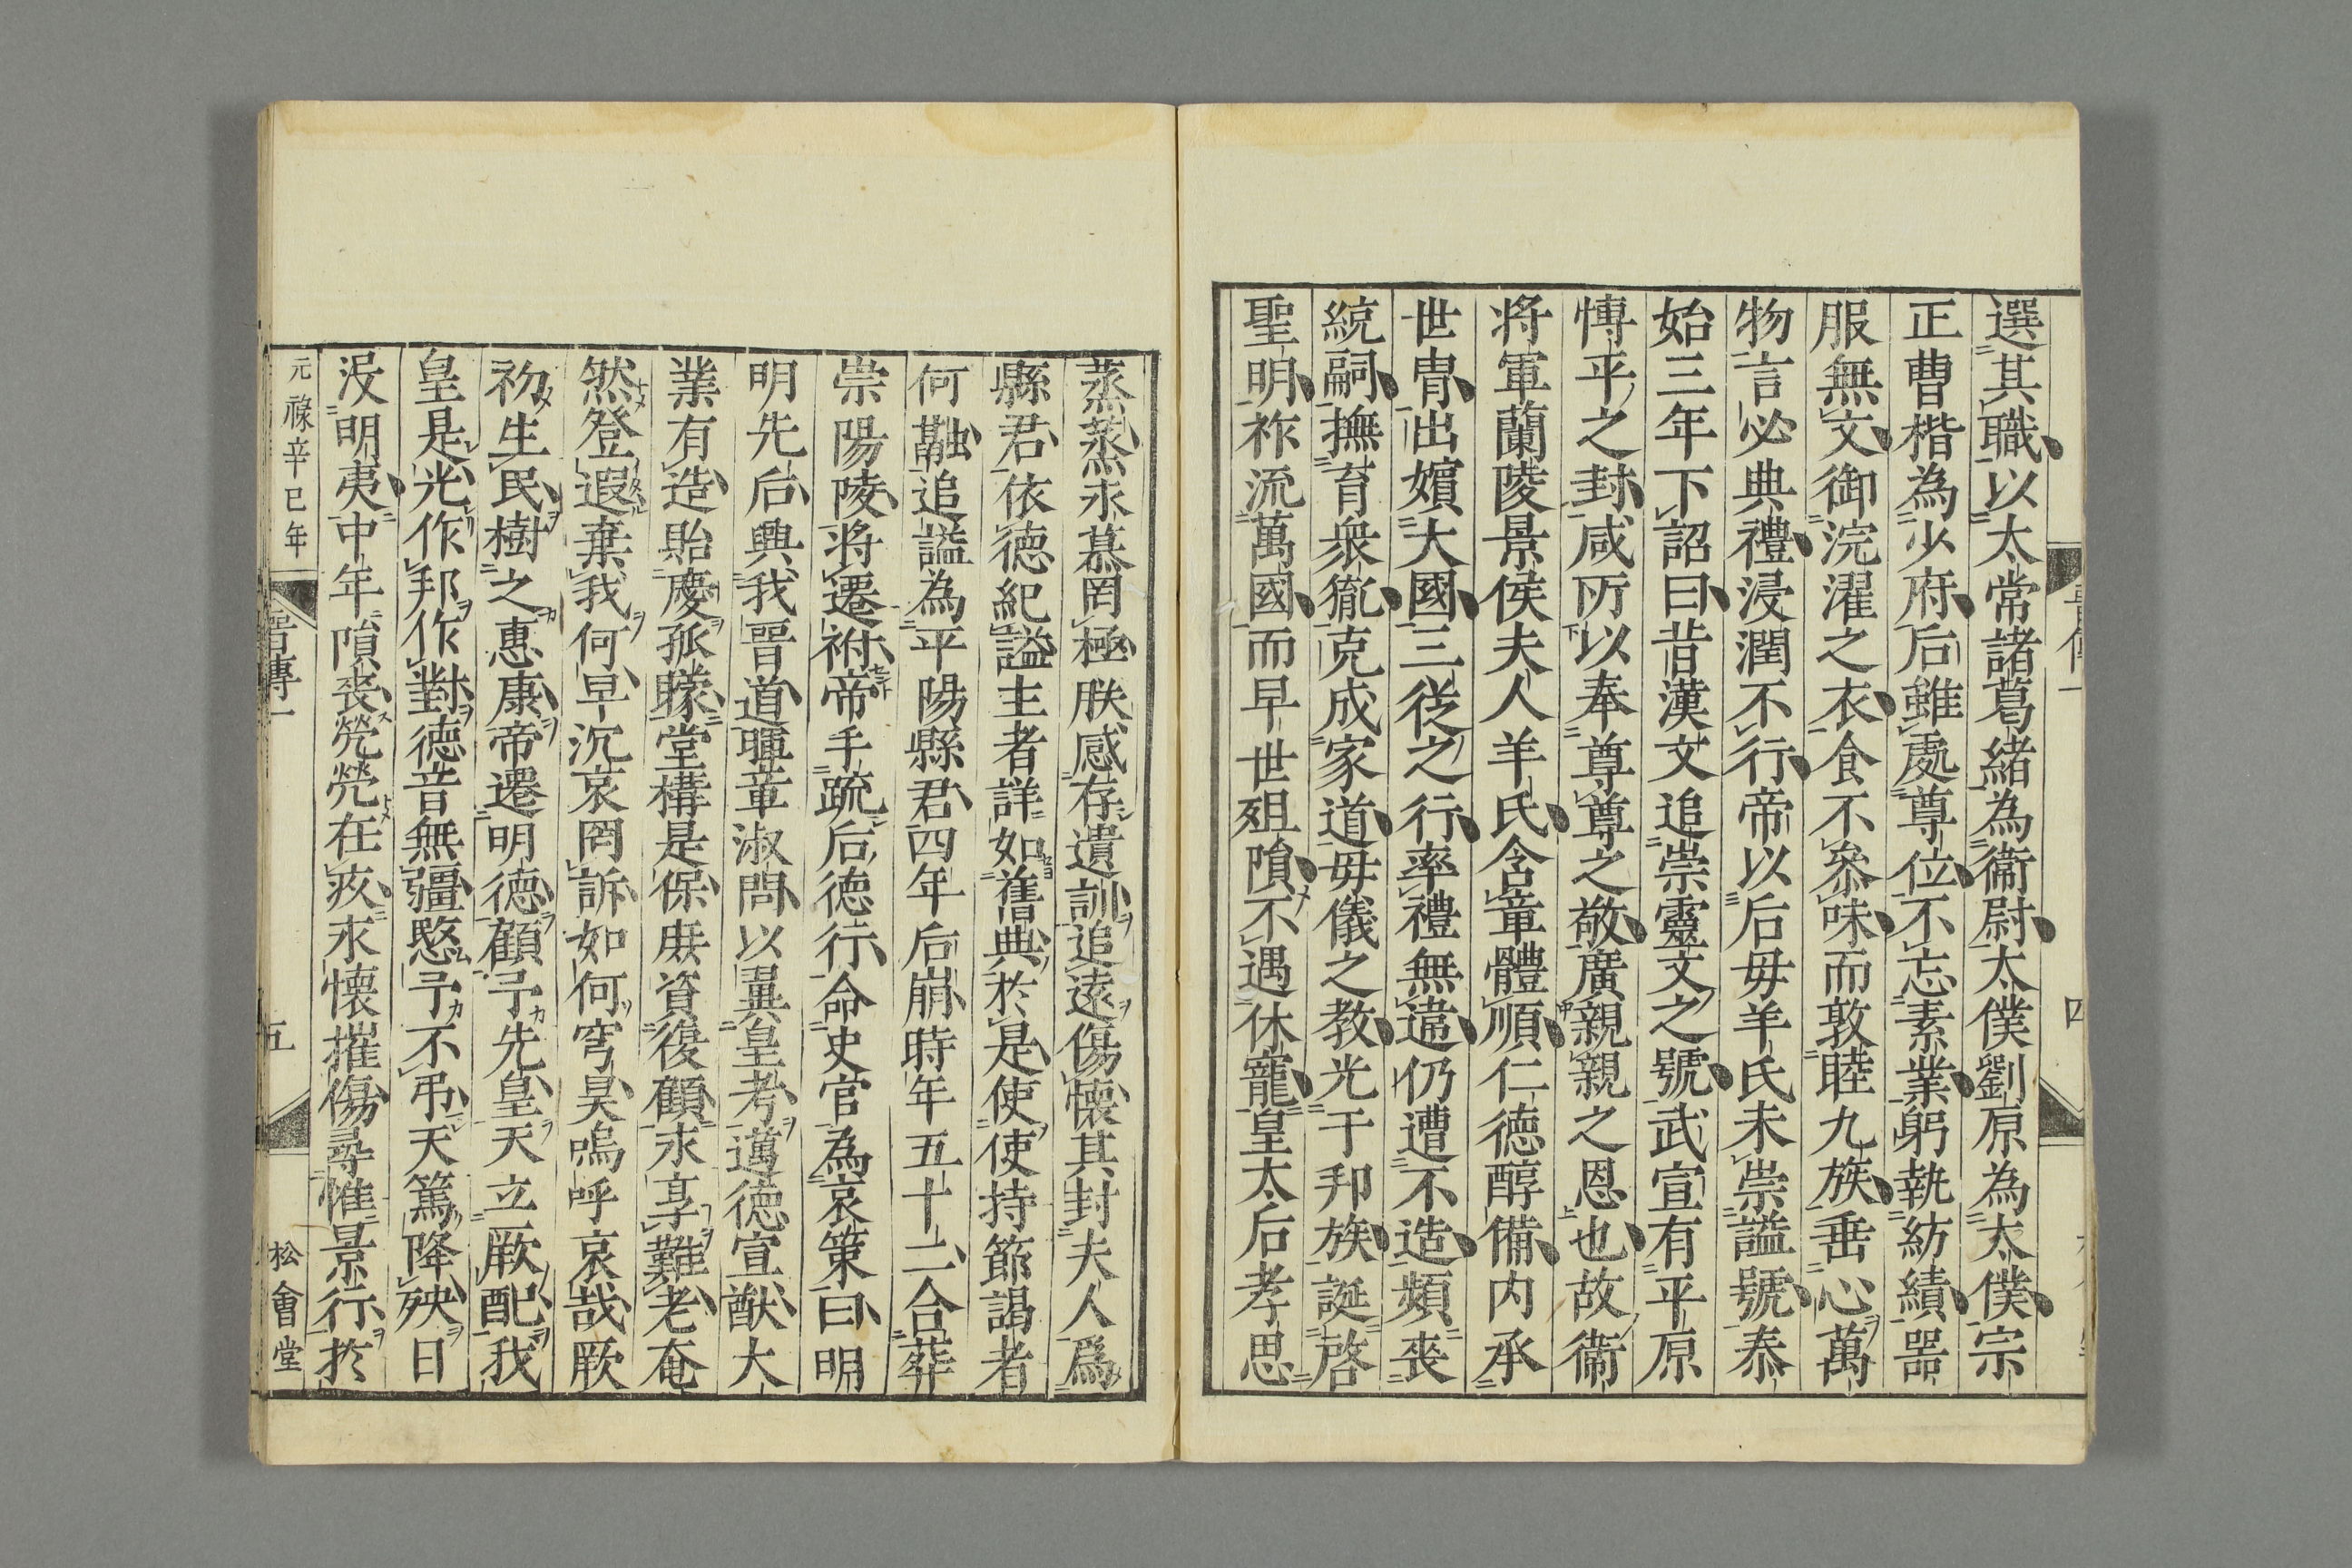 選其職以太常諸葛緒為衞尉太僕劉原為太僕宗
正曹楷為少府后雖處尊位不忘素業躬執紡績器
服無文御浣濯之衣食不參味而敦睦九族垂心萬
物言必典禮浸潤不行帝以后毋羊氏未崇謚號泰
始三年下詔曰昔漢文追崇靈文之號武宣有平原
慱平之封咸所以奉尊尊之敬廣親親之恩也故衞
将軍蘭陵景侯夫人羊氏含章體順仁德醇備内承
世胄出嬪大國三從之行率禮無違仍遭不造頻喪
統嗣撫育衆胤克成家道毋儀之教光于邦族誕啓
聖明祚流萬國而早世殂隕不遇休寵皇太后孝思
蒸蒸永慕罔極朕感存遺訓追遠傷懷其封夫人爲
縣君依德紀謚主者詳如舊典於是使使持節謁者
何融追謚為平陽縣君四年后崩時年五十二合葬
崇陽陵将遷祔帝手疏后德行命史官為哀策曰明
明先后興我晉道暉章淑問以翼皇考邁德宣猷大
業有造貽慶孤矇堂構是保庶資復顧永享難老奄
然登遐棄我何早沉哀罔訴如何穹昊嗚呼哀哉厥
初生民樹之惠康帝遷明德顧予先皇天立厥配我
皇是光作邦作對德音無疆愍予不弔天篤降殃日
没明夷中年隕喪煢煢在疚永懷摧傷尋惟景行於
元祿辛巳年
晉傳一
五
松會堂